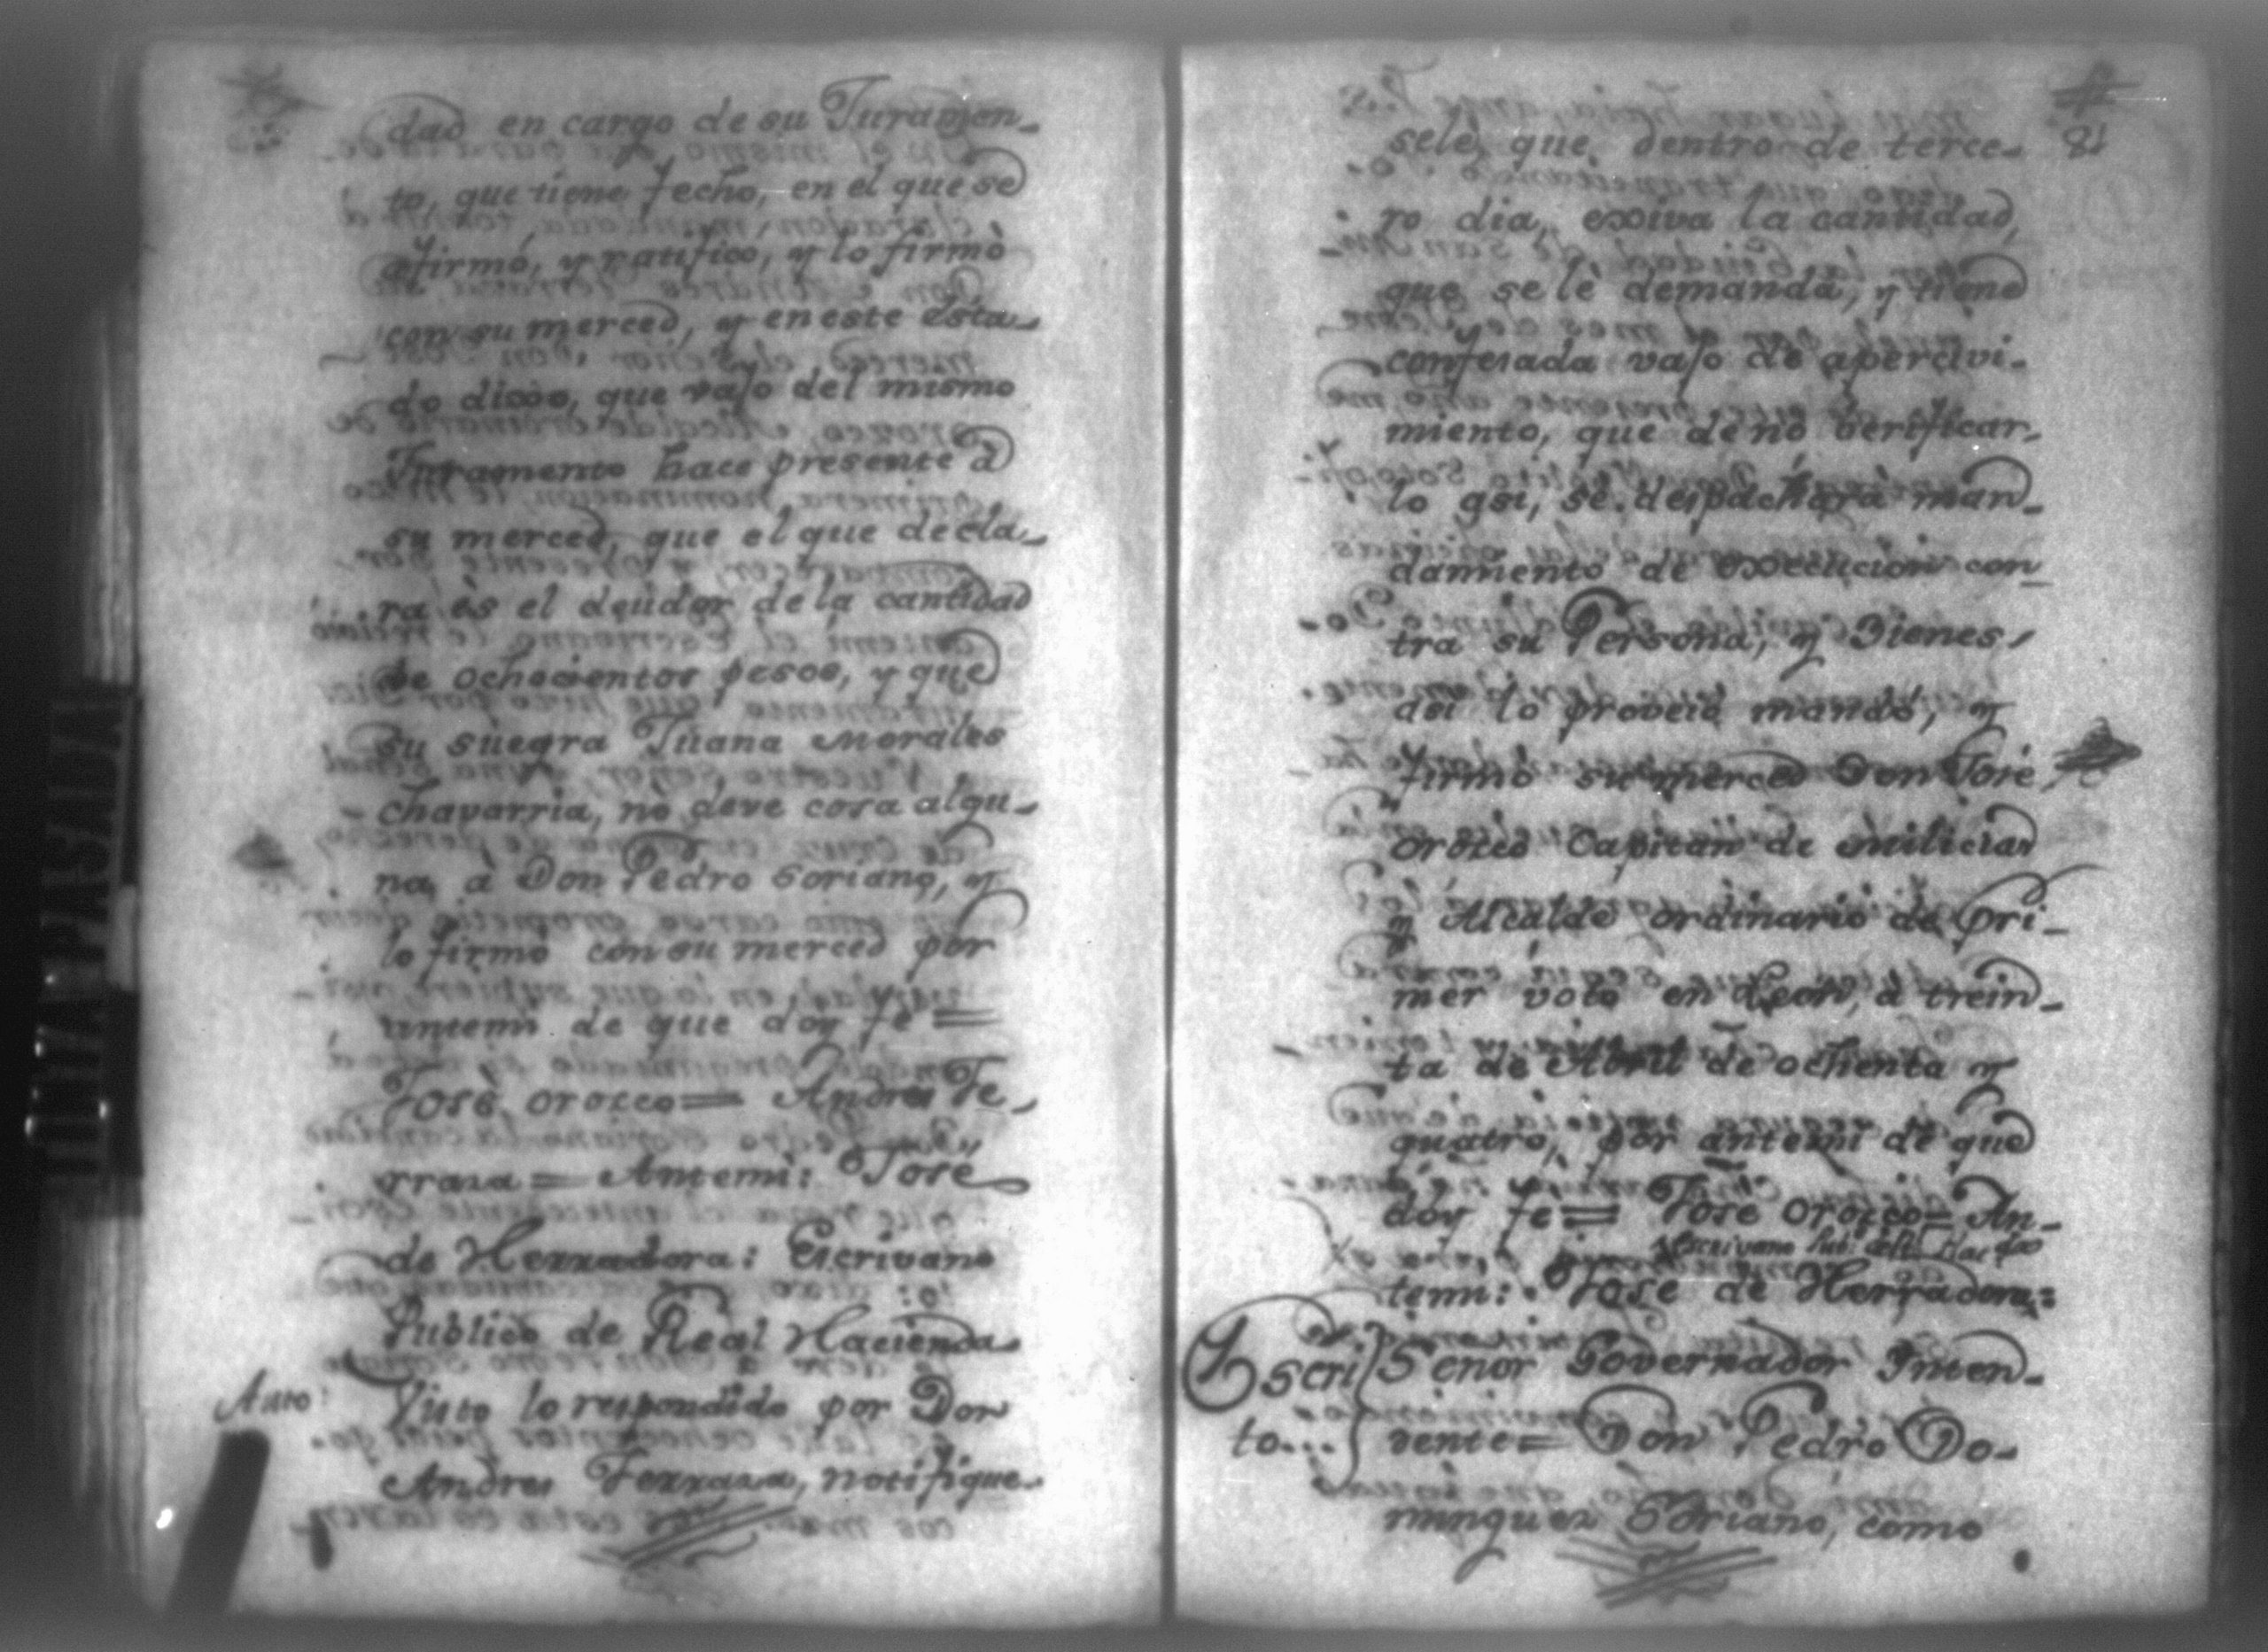 dad en cargo de su Juramen-
to, que tiene fecho, en el que se
afirmó, y ratifico, y lo firmó
con su merced, y en este esta-
do dixo, que vajo del mismo
Juramento hace presente â
su merced, que el que decla-
ra ès el deudor de la cantidad
de ochocientos pesos, y que
su suegra Juana Morales
Chavarria, no deve cosa algu-
na, à Don Pedro Soriano, y
lo firmo con su merced por
antemi de que doy fe =
José Orozco = Andres Te-
rraza = Antemi: José
de Herradora: Escrivano
Publico de Real Hacienda
Auto: Visto lo respondido por Don
Andres Terraza, notifique-
21
sele, que dentro de terce-
ro dia, exiva la cantidad,
que se lè demanda, y tiene
confesada vajo de apercivi-
miento, que de nó berificar-
lo asi, se despachará man-
damiento de execucion con-
tra su Persona, y Bienes,
asi lo proveió mandó, y
firmó su merced Don José
Orozco Capitan de Milicias
y Alcalde ordinario de pri-
mer voto en Leon, à trein-
ta de Abril de ochenta y
quatro, por antemi de que
doy fe = José Orozco = An-
Escrivano Pubco de Rl Hacda
temi: José de Herradora:
Escri Señor Governador Inten-
to... dente = Don Pedro Do-
minguez Soriano, como